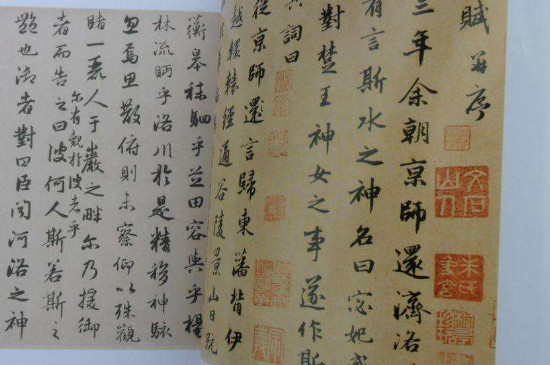 賦并序
三年余朝京師還濟洛
有言斯水之神名曰宓妃
對楚王神女之事遂作斯
其詞曰
從京師還言歸東藩背伊
越轘轅經通谷陵景山日既
衡皋秣駟乎芝田容與乎楊
林流眄乎洛川於是精移神駭
忽焉思散俯則未察仰以殊觀
睹一麗人于巖之畔尔乃援御
者而告之曰尔有覿於彼者乎彼何人斯若斯之
豔也御者對曰臣聞河洛之神